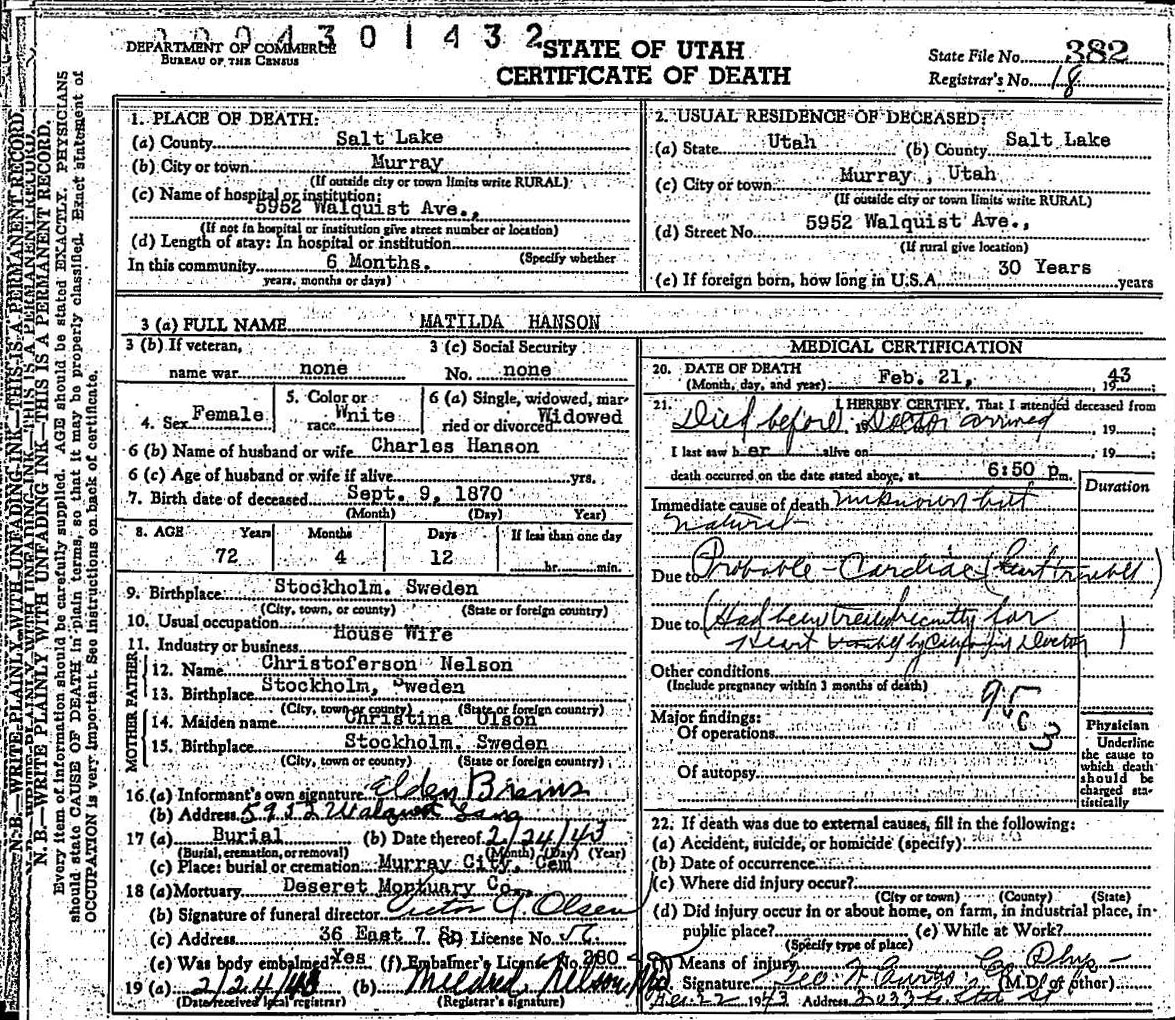 0004301432
DEPARTMENT OF COMMERCE
BUREAU OF THE CENSUS
STATE OF UTAH
CERTIFICATE OF DEATH
State File No. 382
Registrar's No. 18
N. B.—WRITE PLAINLY WITH UNFADING INK—THIS IS A PERMANENT RECORD.
Every item of information should be carefully supplied. AGE should be stated EXACTLY. PHYSICIANS
should state CAUSE OF DEATH in plain terms, so that it may be properly classified. Exact statement of
OCCUPATION is very important. See instructions on back of certificate.
1. PLACE OF DEATH:
(a) County Salt Lake
(b) City or town Murray
(If outside city or town limits write RURAL)
(c) Name of hospital or institution:
5952 Walquist Ave.,
(If not in hospital or institution give street number or location)
(d) Length of stay: In hospital or institution
(Specify whether
In this community 6 Months.
years, months or days)
2. USUAL RESIDENCE OF DECEASED:
(a) State Utah (b) County Salt Lake
(c) City or town Murray , Utah
(If outside city or town limits write RURAL)
(d) Street No. 5952 Walquist Ave.,
(If rural give location)
(e) If foreign born, how long in U.S.A. 30 Years years
3 (a) FULL NAME MATILDA HANSON
3 (b) If veteran,
name war none
3 (c) Social Security
No. none
4. Sex Female
5. Color or
race White
6 (a) Single, widowed, mar-
ried or divorced Widowed
6 (b) Name of husband or wife Charles Hanson
6 (c) Age of husband or wife if alive yrs.
7. Birth date of deceased Sept. 9, 1870
(Month) (Day) Year)
8. AGE Years Months Days If less than one day
72 4 12 hr. min.
9. Birthplace Stockholm. Sweden
(City, town, or county) (State or foreign country)
10. Usual occupation House Wife
11. Industry or business
FATHER
12. Name Christoferson Nelson
13. Birthplace Stockholm, Sweden
(City, town or county) (State or foreign country)
MOTHER
14. Maiden name Christina Olson
15. Birthplace Stockholm. Sweden
(City, town or county) (State or foreign country)
16. (a) Informant's own signature Elden
(b) Address 5952
17 (a) Burial (b) Date thereof 2/24/43
(Burial, cremation, or removal) (Month) (Day) (Year)
(c) Place: burial or cremation Murray City, Cem
18 (a) Mortuary Deseret Mortuary Co.,
(b) Signature of funeral director Victor G. Olsen
(c) Address 36 East 7 So (d) License No.
(e) Was body embalmed? Yes (f) Embalmer's License No. 280
19 (a) 2/24/43 (b) Mildred Nelson
(Date received local registrar) (Registrar's signature)
MEDICAL CERTIFICATION
20. DATE OF DEATH
(Month, day, and year) Feb. 21, , 19 43
21. I HEREBY CERTIFY, That I attended deceased from
Died before 19 Doctor arrived , 19
I last saw h er alive on , 19
death occurred on the date stated above, at 6:50 p m.
Duration
Immediate cause of death unknown but
natural
Due to Probable - Cardiac (heart trouble)
Due to (Had been treated recently for
Heart by Doctor )
Other conditions
(Include pregnancy within 3 months of death)
95c
3
Major findings:
Of operations
Of autopsy
Physician
Underline
the cause to
which death
should be
charged sta-
tistically
22. If death was due to external causes, fill in the following:
(a) Accident, suicide, or homicide (specify)
(b) Date of occurrence
(c) Where did injury occur?
(City or town) (County) (State)
(d) Did injury occur in or about home, on farm, in industrial place, in
public place? (e) While at Work?
(Specify type of place)
Means of injury
Signature Geo (M.D. or other)
Feb. 22 1943 Address